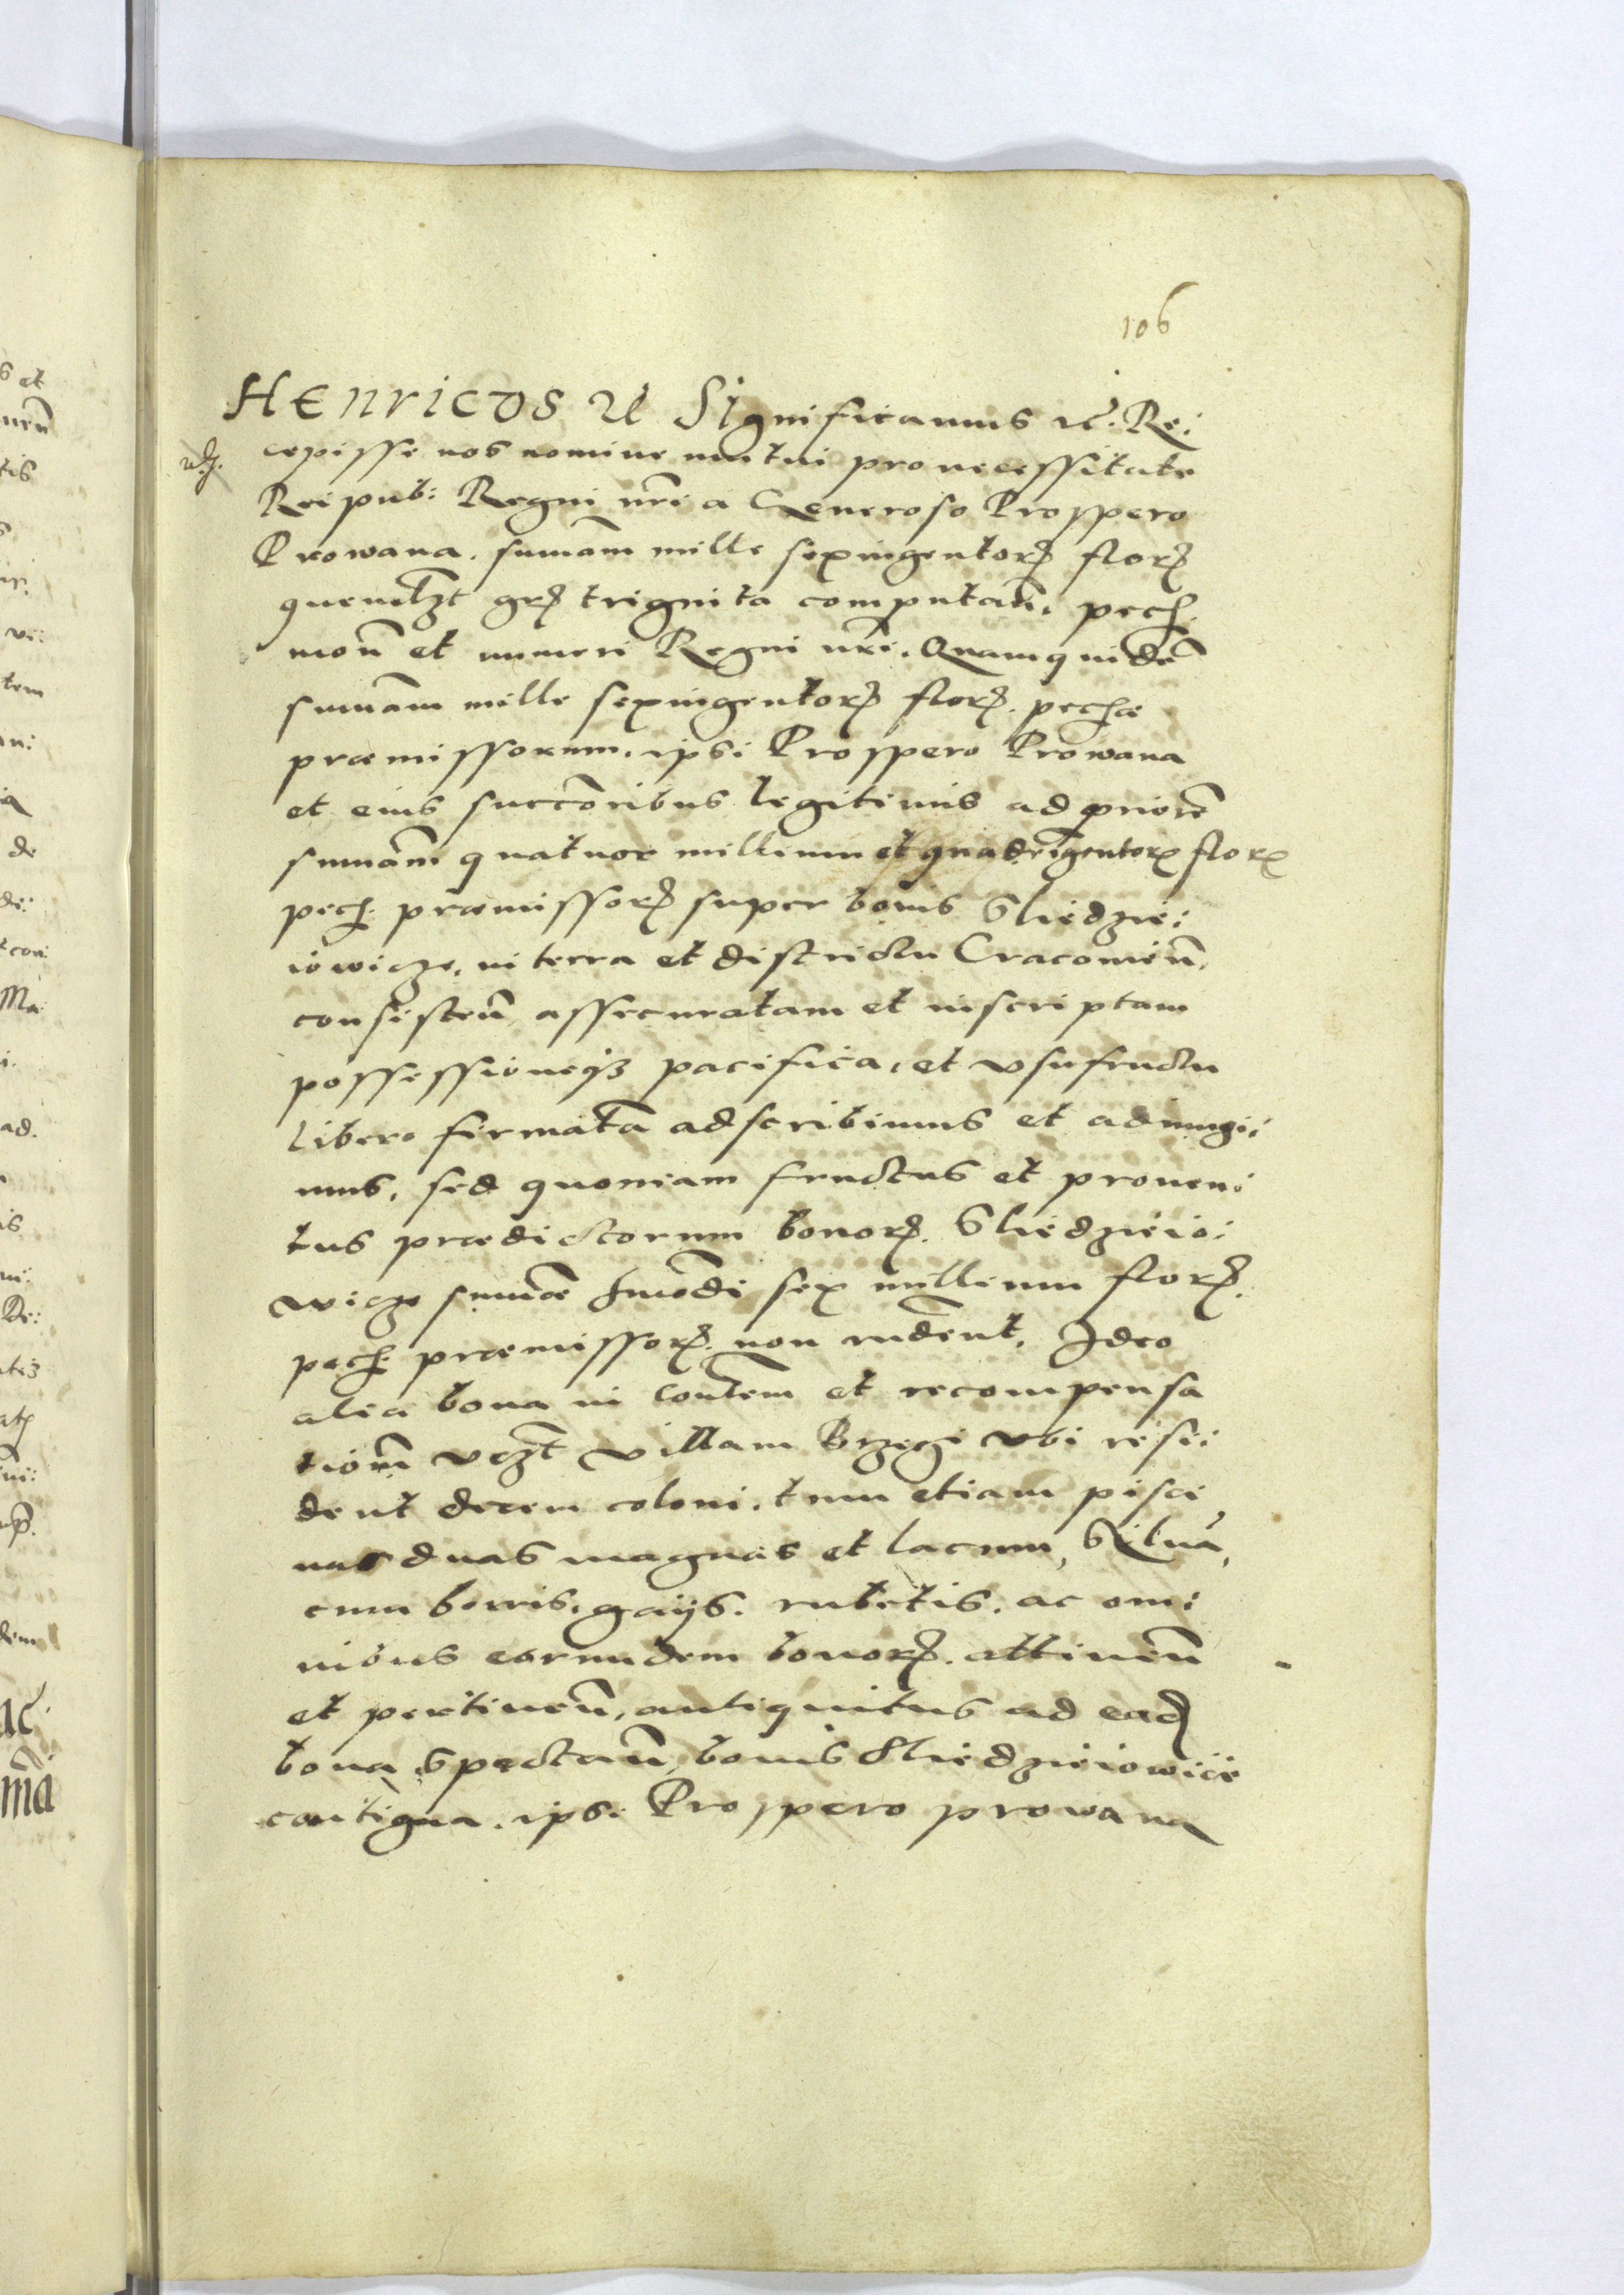 106
HENRICUS etc Significamus etc. Re:
cepisse nos nomine mutui pro necessitate
Reipub: Regni nri a Generoso Prospero
Prowana. sumam mille sexingentorꝝ florꝝ
quemlzt grꝝ trigınta computan. pech.
mon et numeri Regni nri. Quamquidē
sumam mille sexingentorꝝ florꝝ. pechae
praemissorum. ipsi Prospero Prowana
et eius succōribus legitimis ad priorē
sumam quatuor millium et quadringentorꝝ florꝝ
pech. praemissorꝝ super bonis Sliedzie:
iowicze. in terra et districtu Cracouien.
consisten assecuratam et inscriptam
possessioneqꝫ pacifica, et vsufructu
libero firmatā adscribimus et adiungi:
mus. sed quoniam fructus et prouen:
tus praedictorum bonorꝝ. Sliedzieio:
wicze sumae hmōdi sex millium florꝝ.
pech. praemissorꝝ. non rndent. Ideo
alia bona in contem et recompensa
tiōm vczt villam Brzegi vbi resi:
dent decem coloni. tum etiam pisci
nas duas magnas et lacum,
cum borris. gaijs. rubetis. ac om:
nibus earumdem bonorꝝ. attinen
et pertinen, antiquitus ad eadꝫ
bona spectan, bonis Sliedzieiowice
contigua. ipsi Prospero prowana